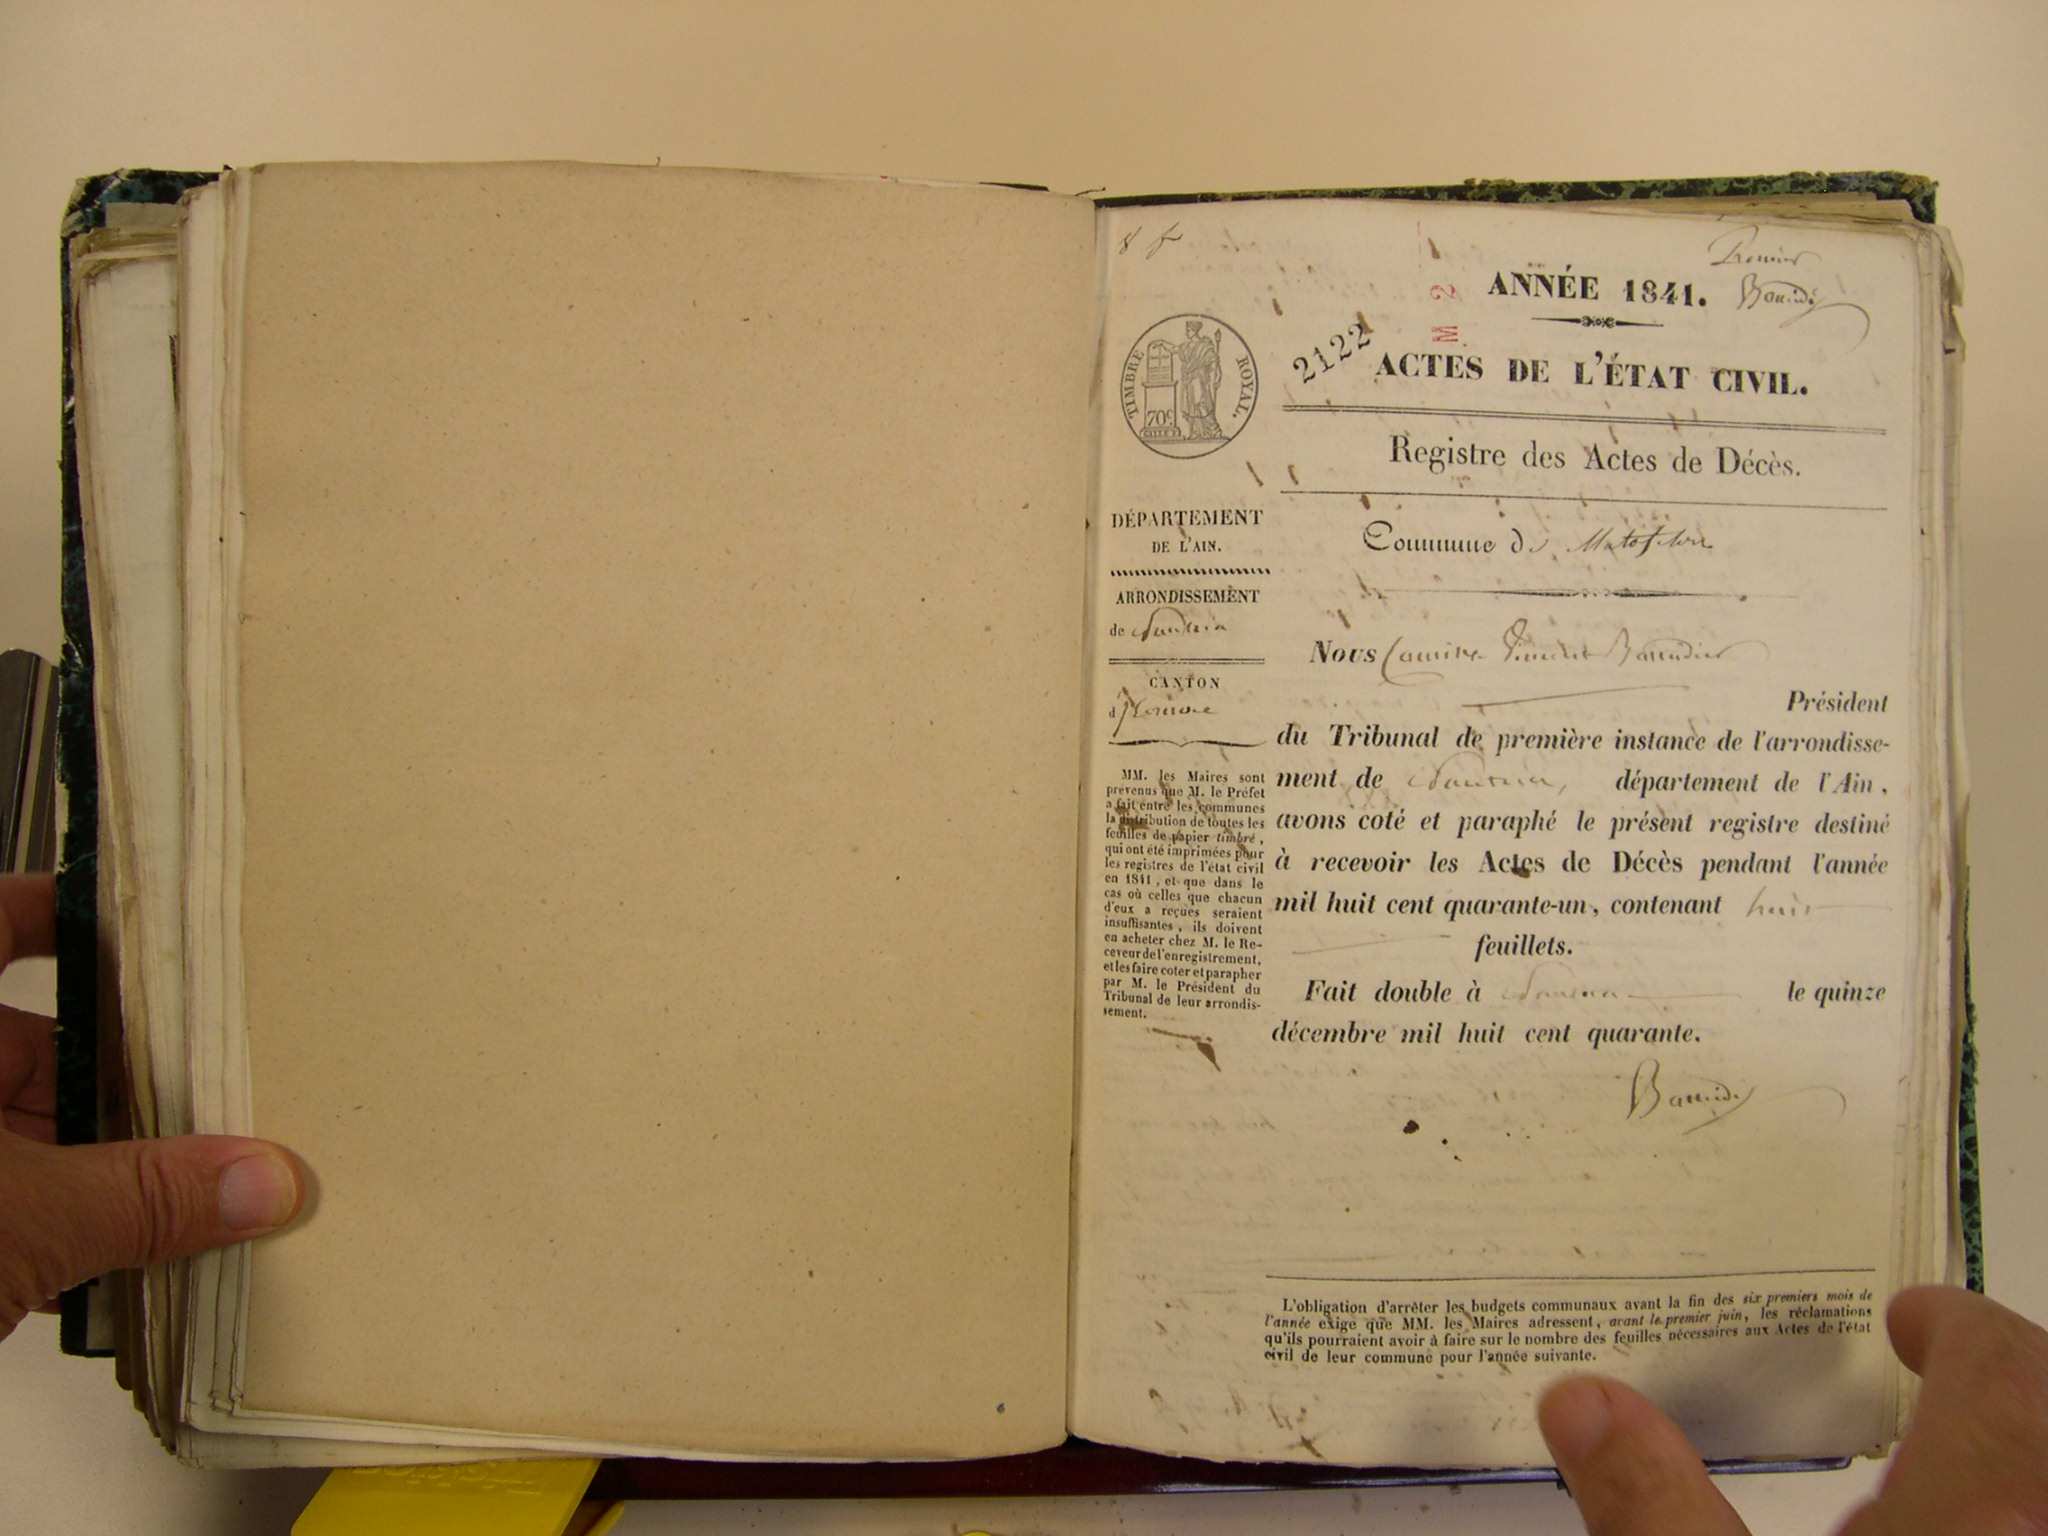 8 f
Premier
ANNÉE 1841.
M 2
2122
ACTES DE L'ÉTAT CIVIL.
TIMBRE ROYAL.
70c
Registre des Actes de Décès.
DÉPARTEMENT
DE L'AIN.
Commune de Matafelon
ARRONDISSEMENT
de Nantua
CANTON
d'Izernore
MM. les Maires sont
prévenus que M. le Préfet
a fait entre les communes
la distribution de toutes les
feuilles de papier timbré,
qui ont été imprimées pour
les registres de l'état civil
en 1841, et que dans le
cas où celles que chacun
d'eux a reçues seraient
insuffisantes, ils doivent
en acheter chez M. le Re-
ceveur de l'enregistrement,
et les faire coter et parapher
par M. le Président du
Tribunal de leur arrondis-
sement.
Nous Camille Vincent
Président
du Tribunal de première instance de l'arrondisse-
ment de Nantua, département de l'Ain,
avons coté et paraphé le présent registre destiné
à recevoir les Actes de Décès pendant l'année
mil huit cent quarante-un, contenant huit
feuillets.
Fait double à Nantua le quinze
décembre mil huit cent quarante.
L'obligation d'arrêter les budgets communaux avant la fin des six premiers mois de
l'année exige que MM. les Maires adressent, avant le premier juin, les réclamations
qu'ils pourraient avoir à faire sur le nombre des feuilles nécessaires aux Actes de l'état
civil de leur commune pour l'année suivante.